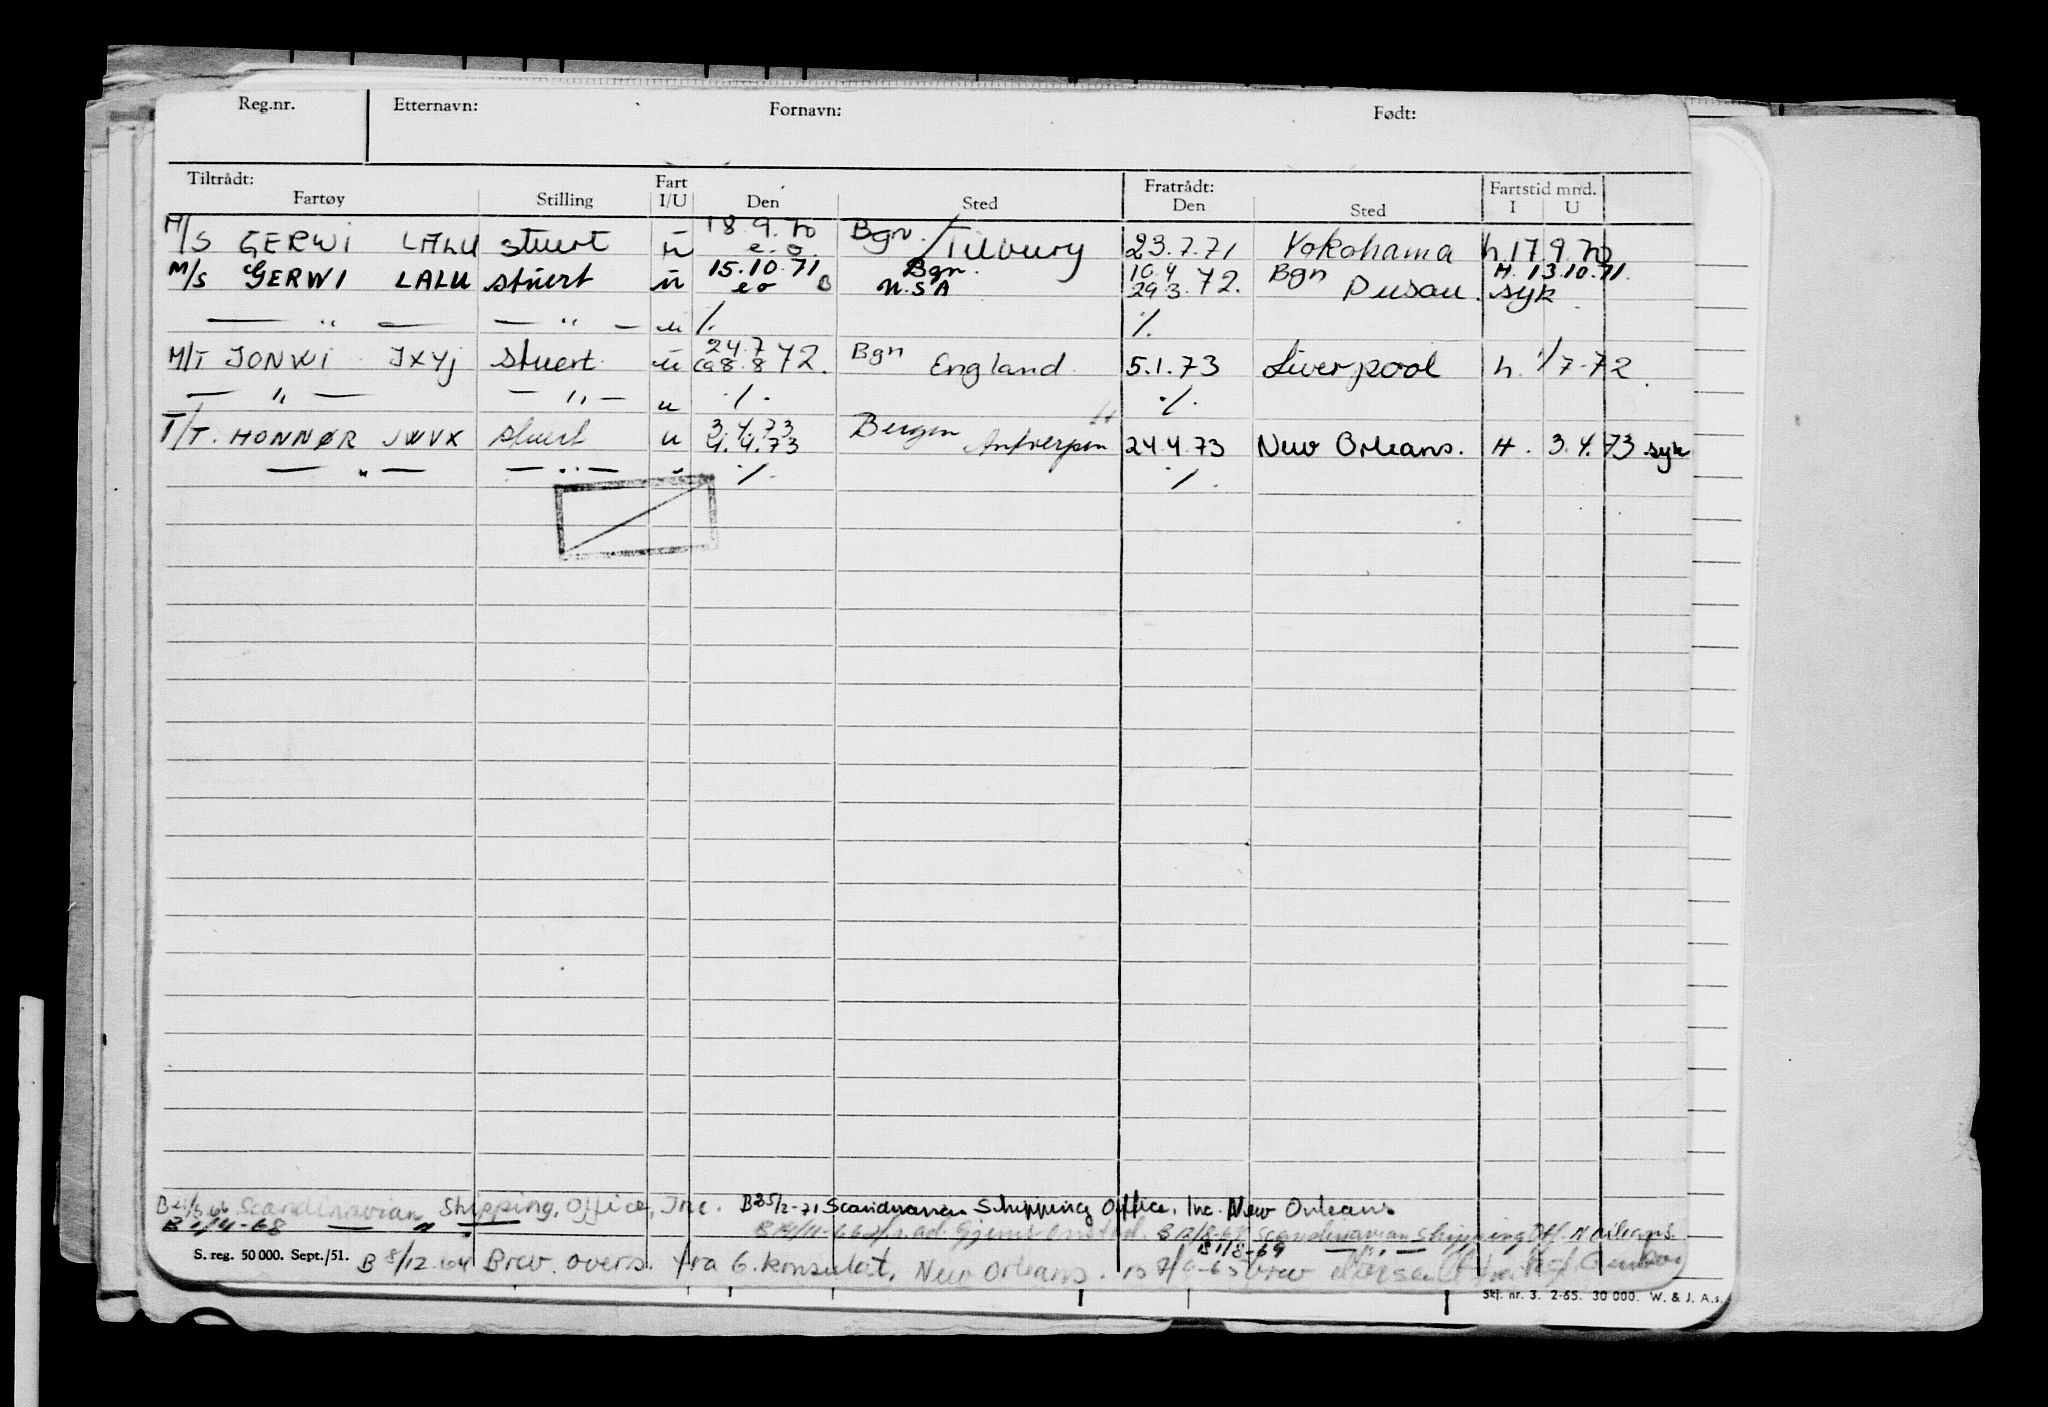 Reg.nr. Etternavn: Fornavn: Født:
Tiltrådt: Fart Fratrådt: Fartstid mnd.
Fartøy Stilling I/U Den Sted Den Sted I U
M/S GERWI LALU stuert u 18.9.70 e.o. Bgn./Tilbury 23.7.71 Yokohama h.17.9.70
M/S GERWI LALU stuert u 15.10.71 eo B Bgn. U.S.A 10.4 29.3.72. Bgn Pusan. H. 13.10.71. syk
— " — — " — u /. /.
M/T JONWI JXYJ stuert u 24.7 ca 8.8 72. Bgn England 5.1.73 Liverpool h. 1/7-72.
— " — — " — u ./. ./.
T/T. HONNØR JWVX stuert u 3.4.73 4.4.73 Bergen Antwerpen 24.4.73 New Orleans. H. 3.4.73 syk
— " — — " — " /. /.
B 21/3.66 Scandinavian Shipping, Office, Inc. B 25/2-71 Scandinavian Shipping Office, Inc. New Orleans
B 1/4-68 — " — B 14/11-66 ad. B 12/8-67 Scandinavian Shipping Off. N Orleans
B 1/8-69 — " —
S. reg. 50 000. Sept./51. B 8/12.64 Brev. overs. fra G. konsulat, New Orleans. brev
Skf. nr. 3. 2-65. 30 000. W. & J. A.s.